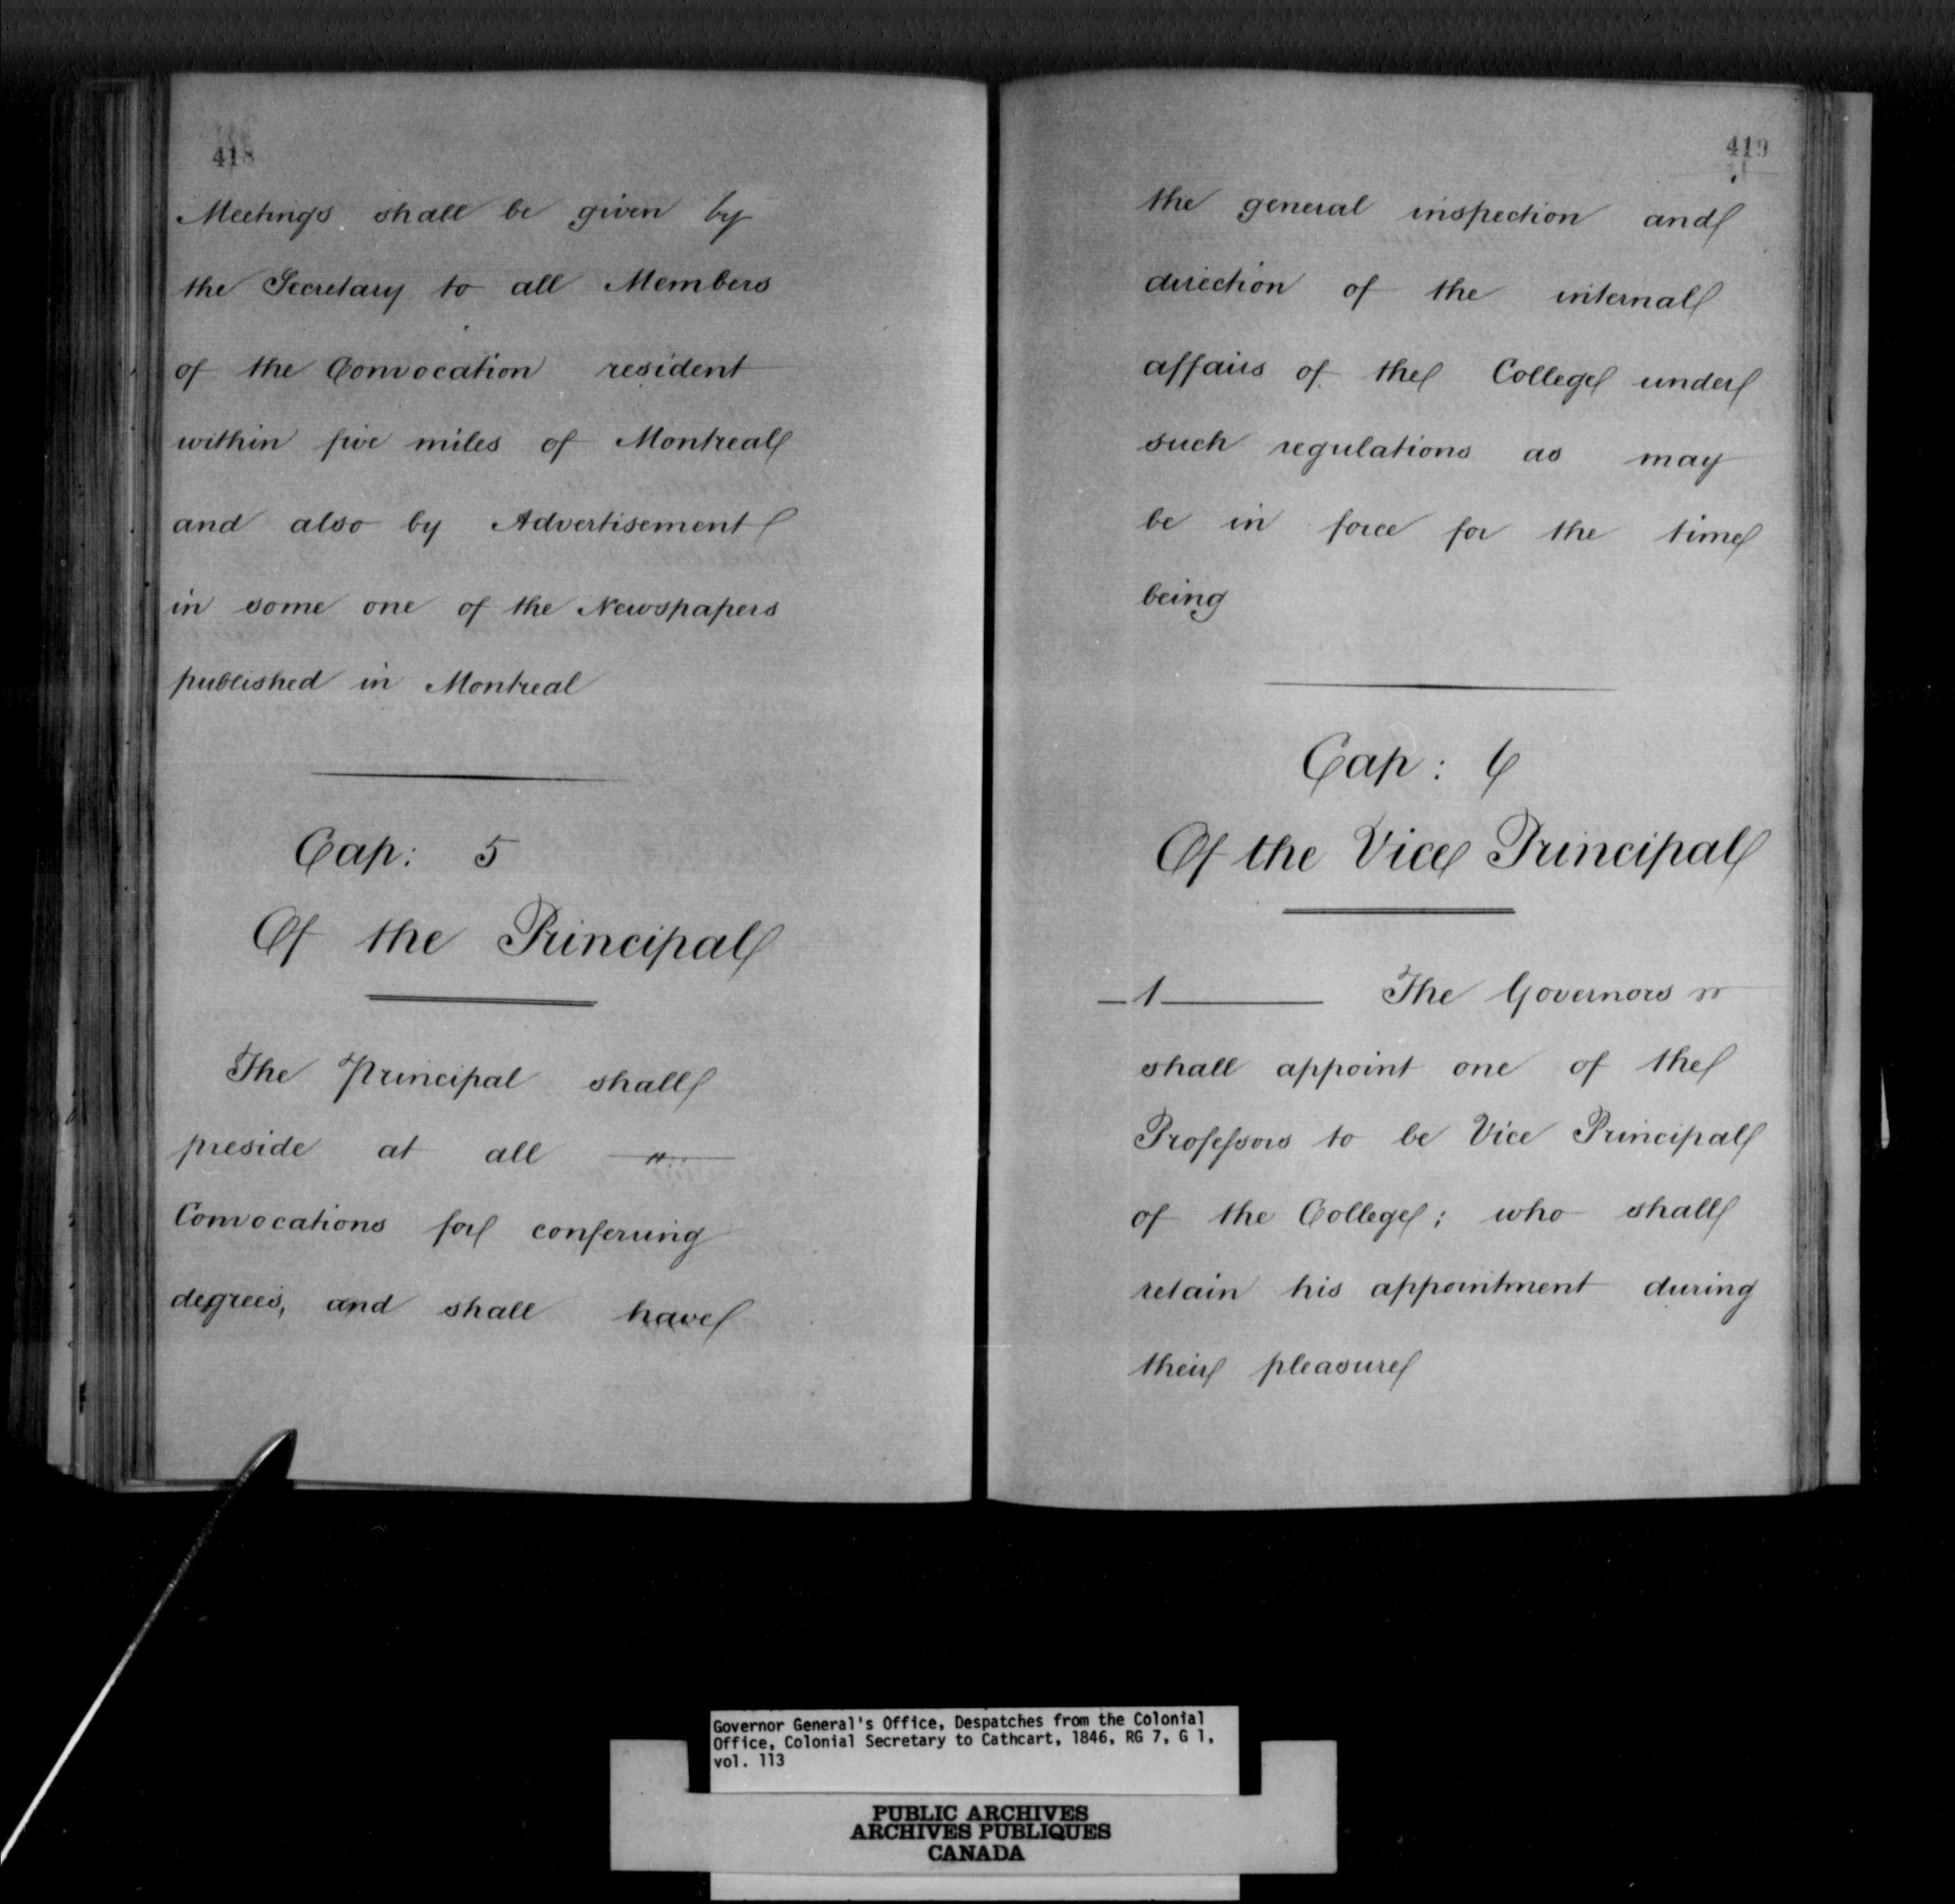 418
Meetings shall be given by
the Secretary to all Members
of the Convocation resident
within five miles of Montreal
and also by Advertisement
in some one of the Newspapers
published in Montreal
Cap: 5
Of the Principal
The Principal shall
preside at all "
Convocations for conferring
degrees, and shall have
419
the general inspection and
direction of the internal
affairs of the College under
such regulations as may
be in force for the time
being
Cap: 6
Of the Vice Principal
1 The Governors
shall appoint one of the
Professors to be Vice Principal
of the College; who shall
retain his appointment during
their pleasure
Governor General's Office, Despatches from the Colonial
Office, Colonial Secretary to Cathcart, 1846, RG 7, G 1,
vol. 113
PUBLIC ARCHIVES
ARCHIVES PUBLIQUES
CANADA